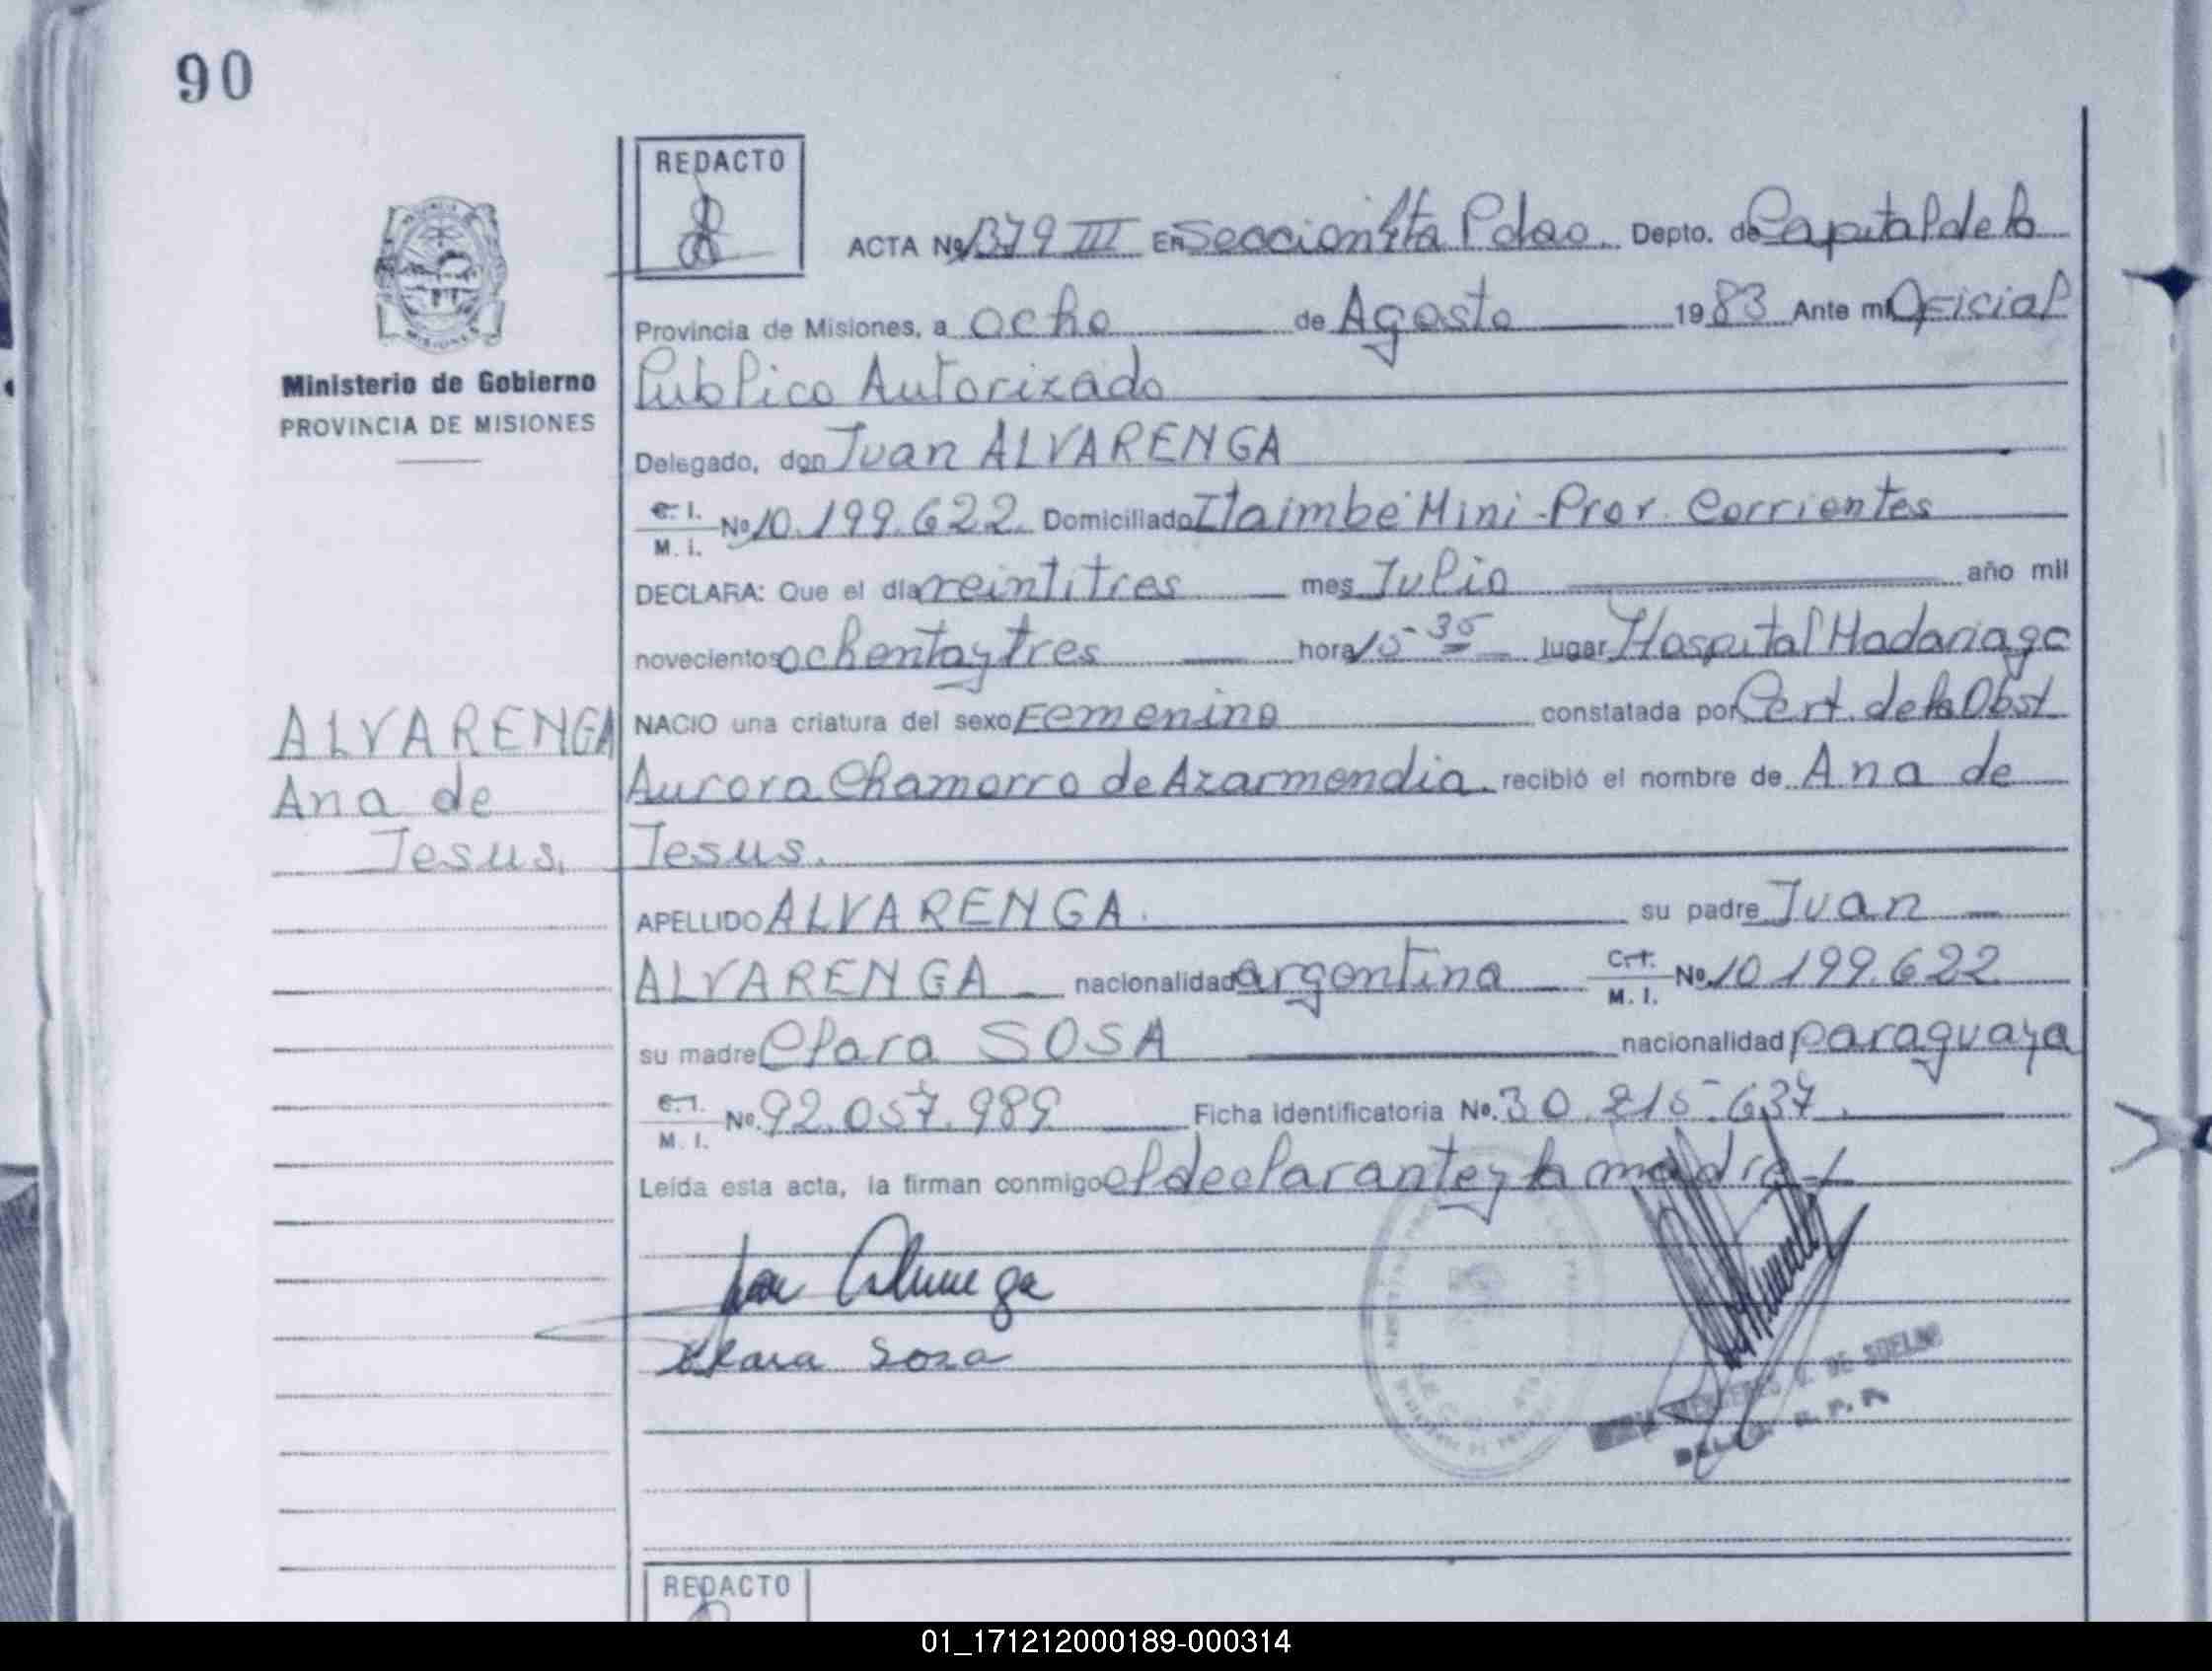 90
REDACTO
ACTA Nº 1379 III EN Seccion 4ta Pdas. Depto. de Capital de la
Provincia de Misiones, a ocho de Agosto 1983 Ante mi Oficial
Ministerio de Gobierno
PROVINCIA DE MISIONES
Publico Autorizado
Delegado, don Juan ALVARENGA
C. I. M. I. Nº 10.199.622. Domiciliado Itaimbe Mini - Prov. Corrientes
DECLARA: Que el día veintitres mes Julio año mil
novecientos ochenta y tres hora 15-35 lugar Hospital Madariaga
ALVARENGA
Ana de
Jesus.
NACIO una criatura del sexo Femenino constatada por Cert. de la Obst
Aurora Chamorro de Azarmendia. recibió el nombre de Ana de
Jesus.
APELLIDO ALVARENGA. su padre Juan
ALVARENGA nacionalidad argentina C. I. M. I. Nº 10.199.622
su madre Clara SOSA nacionalidad paraguaya
C. I. M. I. Nº. 92.057.989 Ficha identificatoria Nº. 30.215.637.
Leída esta acta, la firman conmigo el declarante y la madre
Clara Sosa
DE
REDACTO
01_171212000189-000314